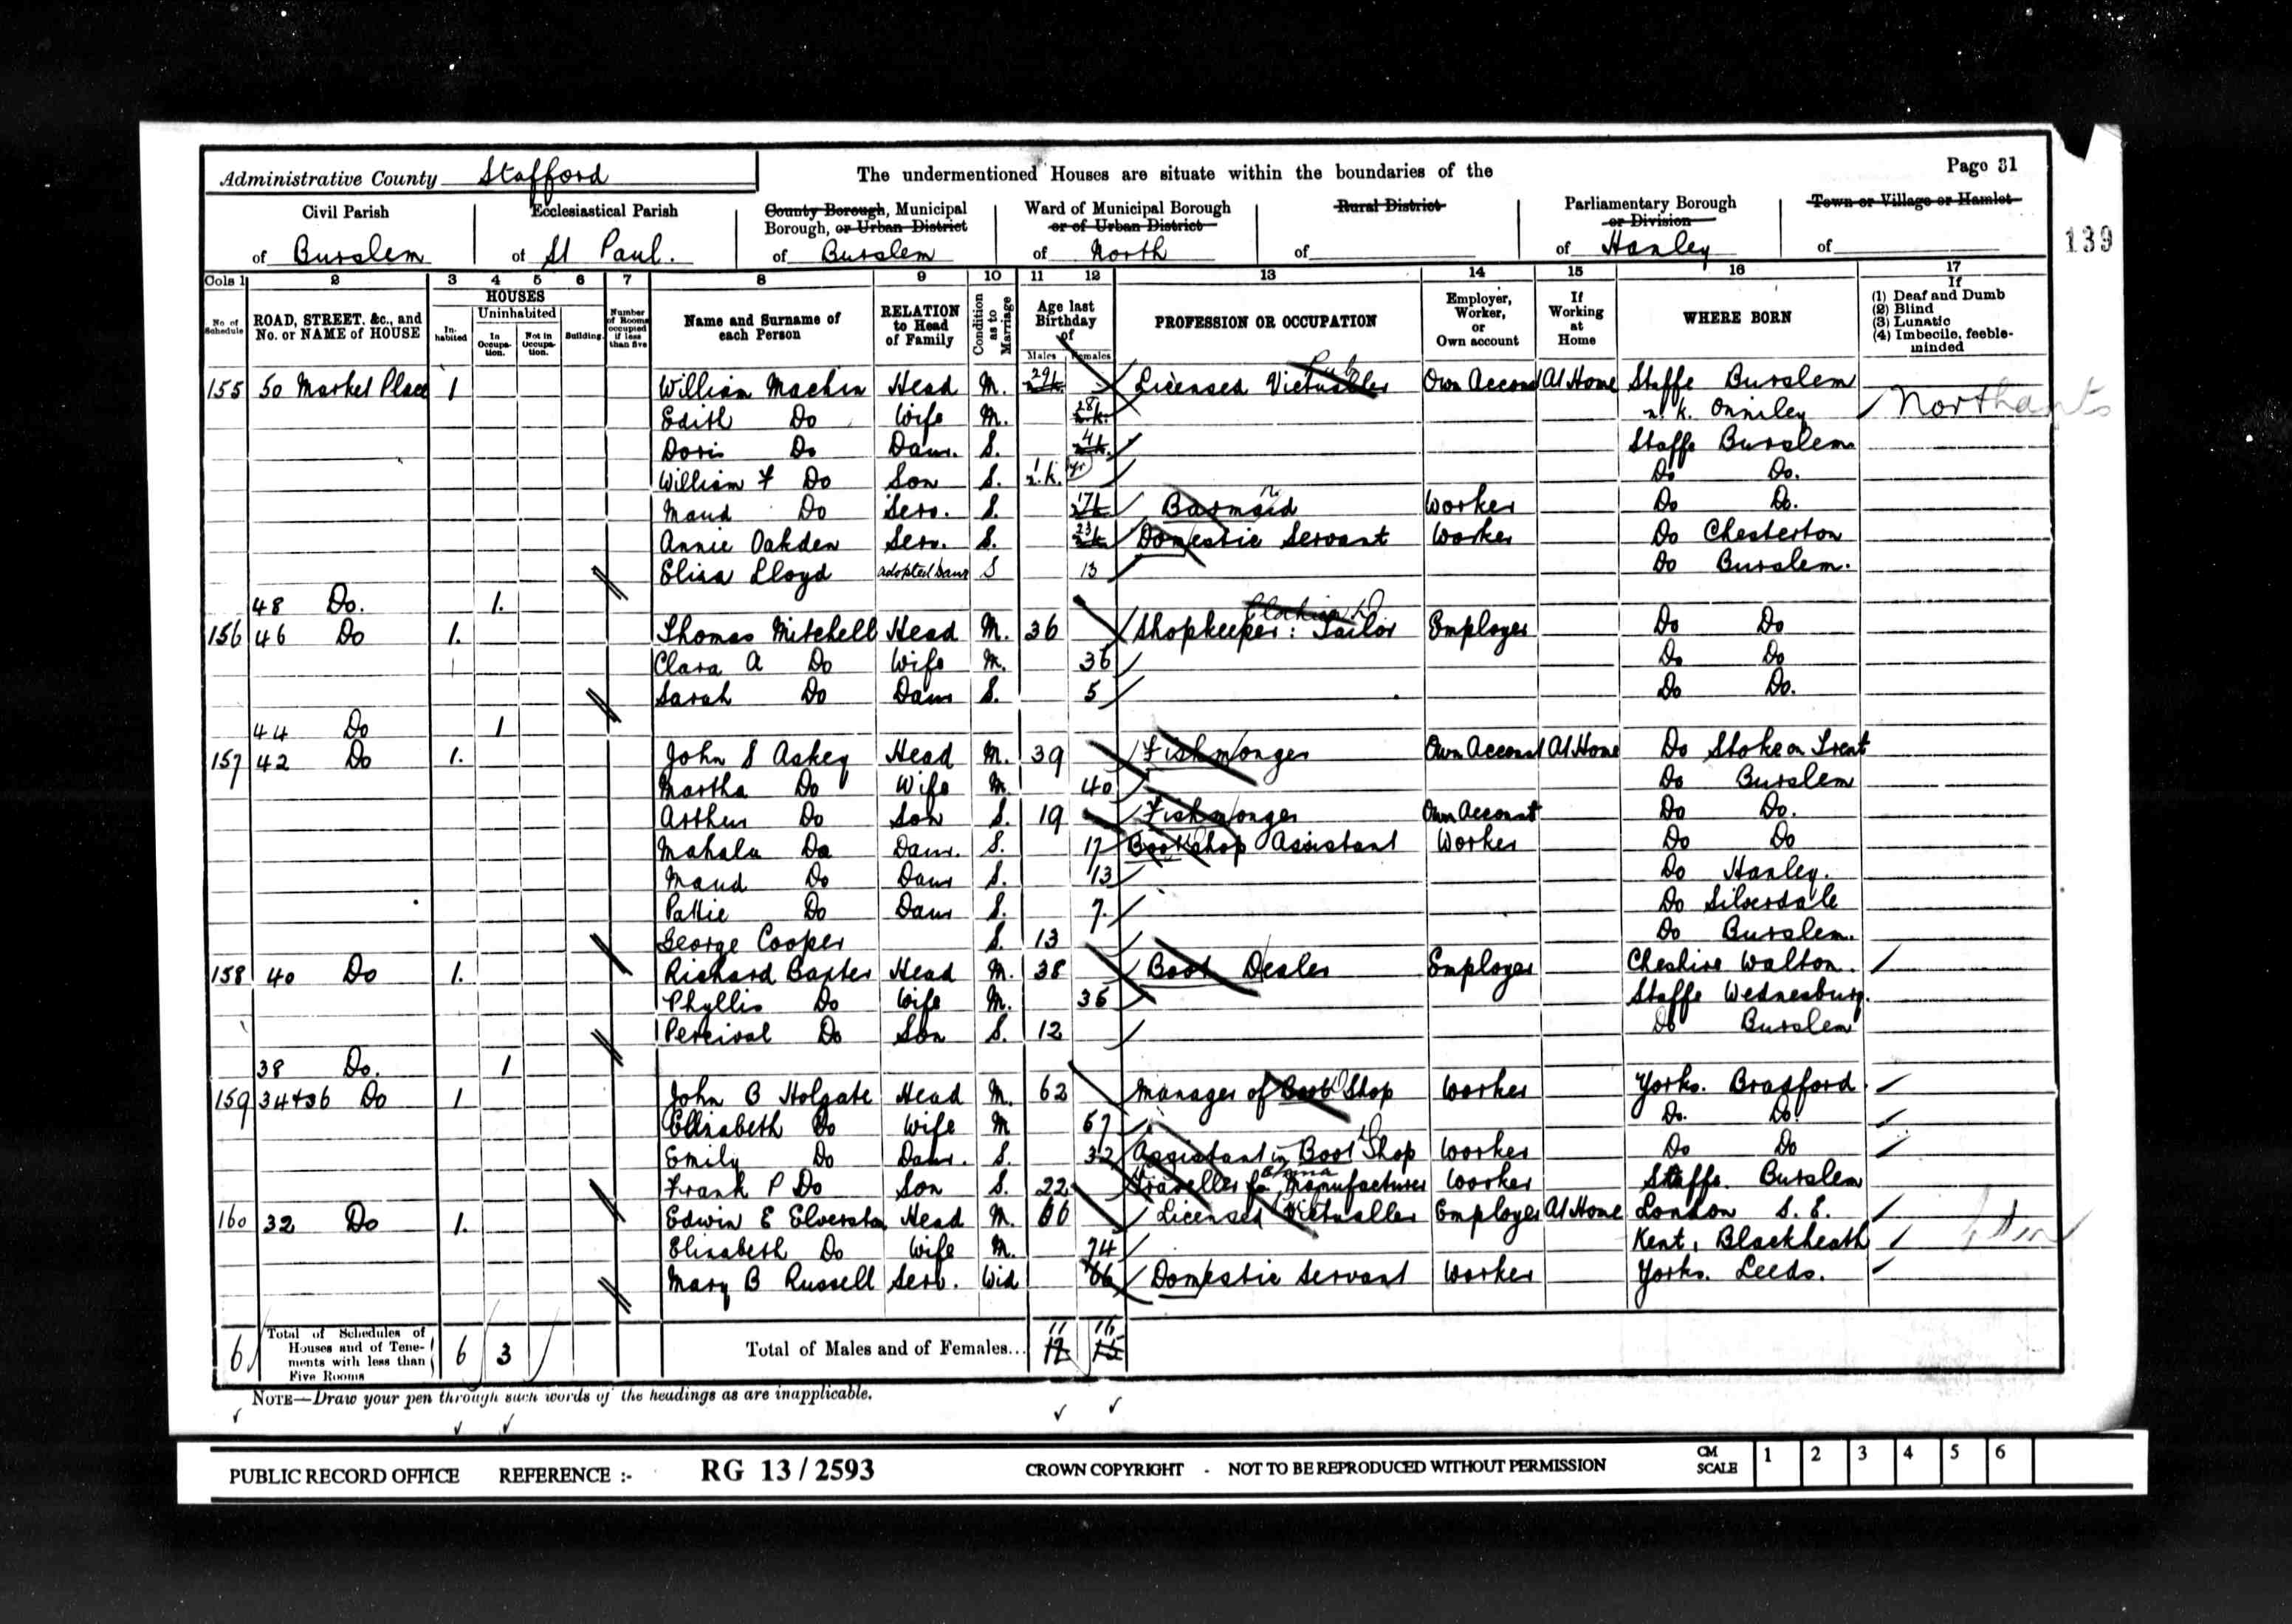 Administrative County Stafford
The undermentioned Houses are situate within the boundaries of the
Page 31
Civil Parish of Burslem
Ecclesiastical Parish of St Paul.
County Borough, Municipal Borough, or Urban District of Burslem
Ward of Municipal Borough or of Urban District of North
Rural District of
Parliamentary Borough or Division of Hanley
Town or Village or Hamlet of
139
Cols 1 2 3 4 5 6 7 8 9 10 11 12 13 14 15 16 17
No of Schedule
ROAD, STREET, &c., and No. or NAME of HOUSE
HOUSES
In-habited
Uninhabited
In Occupa-tion.
Not in Occupa-tion.
Building
Number of Rooms occupied if less than five
Name and Surname of each Person
RELATION to Head of Family
Condition as to Marriage
Age last Birthday of
Males Females
PROFESSION OR OCCUPATION
Employer, Worker, or Own account
If Working at Home
WHERE BORN
If
(1) Deaf and Dumb
(2) Blind
(3) Lunatic
(4) Imbecile, feeble-minded
155 50 Market Place 1 William Machin Head M. 29 Licensed Victualler Own Account At Home Staffs Burslem
Edith Do Wife M. 28 n.k. Onniley Northants
Doris Do Daur. S. 4 Staffs Burslem
William F Do Son S. 1 n.k. Do Do.
Maud Do Serv. S. 17 Barmaid Worker Do Do.
Annie Oakden Serv. S. 23 Domestic Servant Worker Do Chesterton
Eliza Lloyd adopted Daur S 13 Do Burslem.
48 Do. 1.
156 46 Do 1. Thomas Mitchell Head M. 36 Shopkeeper: Tailor Employer Do Do
Clara A Do Wife M. 36 Do Do
Sarah Do Daur S. 5 Do Do.
44 Do 1
157 42 Do 1. John S Askey Head M. 39 Fishmonger Own Account At Home Do Stoke on Trent
Martha Do Wife M. 40 Do Burslem
Arthur Do Son S. 19 Fishmonger Own Account Do Do.
Mahala Do Daur. S. 17 Bookshop Assistant Worker Do Do
Maud Do Daur S. 13 Do Hanley.
Pattie Do Daur S. 7. Do Silverdale
George Cooper S. 13 Do Burslem.
158 40 Do 1. Richard Baxter Head M. 38 Boot Dealer Employer Cheshire Walton.
Phyllis Do Wife M. 36 Staffs Wednesbury.
Percival Do Son S. 12 Do Burslem
38 Do. 1
159 34+36 Do 1 John B Holgate Head M. 62 Manager of Boot Shop Worker Yorks. Bradford.
Ellizabeth Do Wife M 67 Do. Do.
Emily Do Daur. S. 32 Assistant in Boot Shop Worker Do Do
Frank P Do Son S. 22 Traveller for Manufacturer Worker Staffs. Burslem
160 32 Do 1. Edwin E Elverston Head M. 60 Licensed Victualler Employer At Home London S. E.
Elizabeth Do Wife M. 74 Kent, Blackheath
Mary B Russell Serv. Wid 66 Domestic Servant Worker Yorks. Leeds.
6 Total of Schedules of Houses and of Tene-ments with less than Five Rooms 6 3 Total of Males and of Females... 11 12 16 15
NOTE—Draw your pen through such words of the headings as are inapplicable.
PUBLIC RECORD OFFICE REFERENCE :- RG 13/2593 CROWN COPYRIGHT - NOT TO BE REPRODUCED WITHOUT PERMISSION CM SCALE 1 2 3 4 5 6